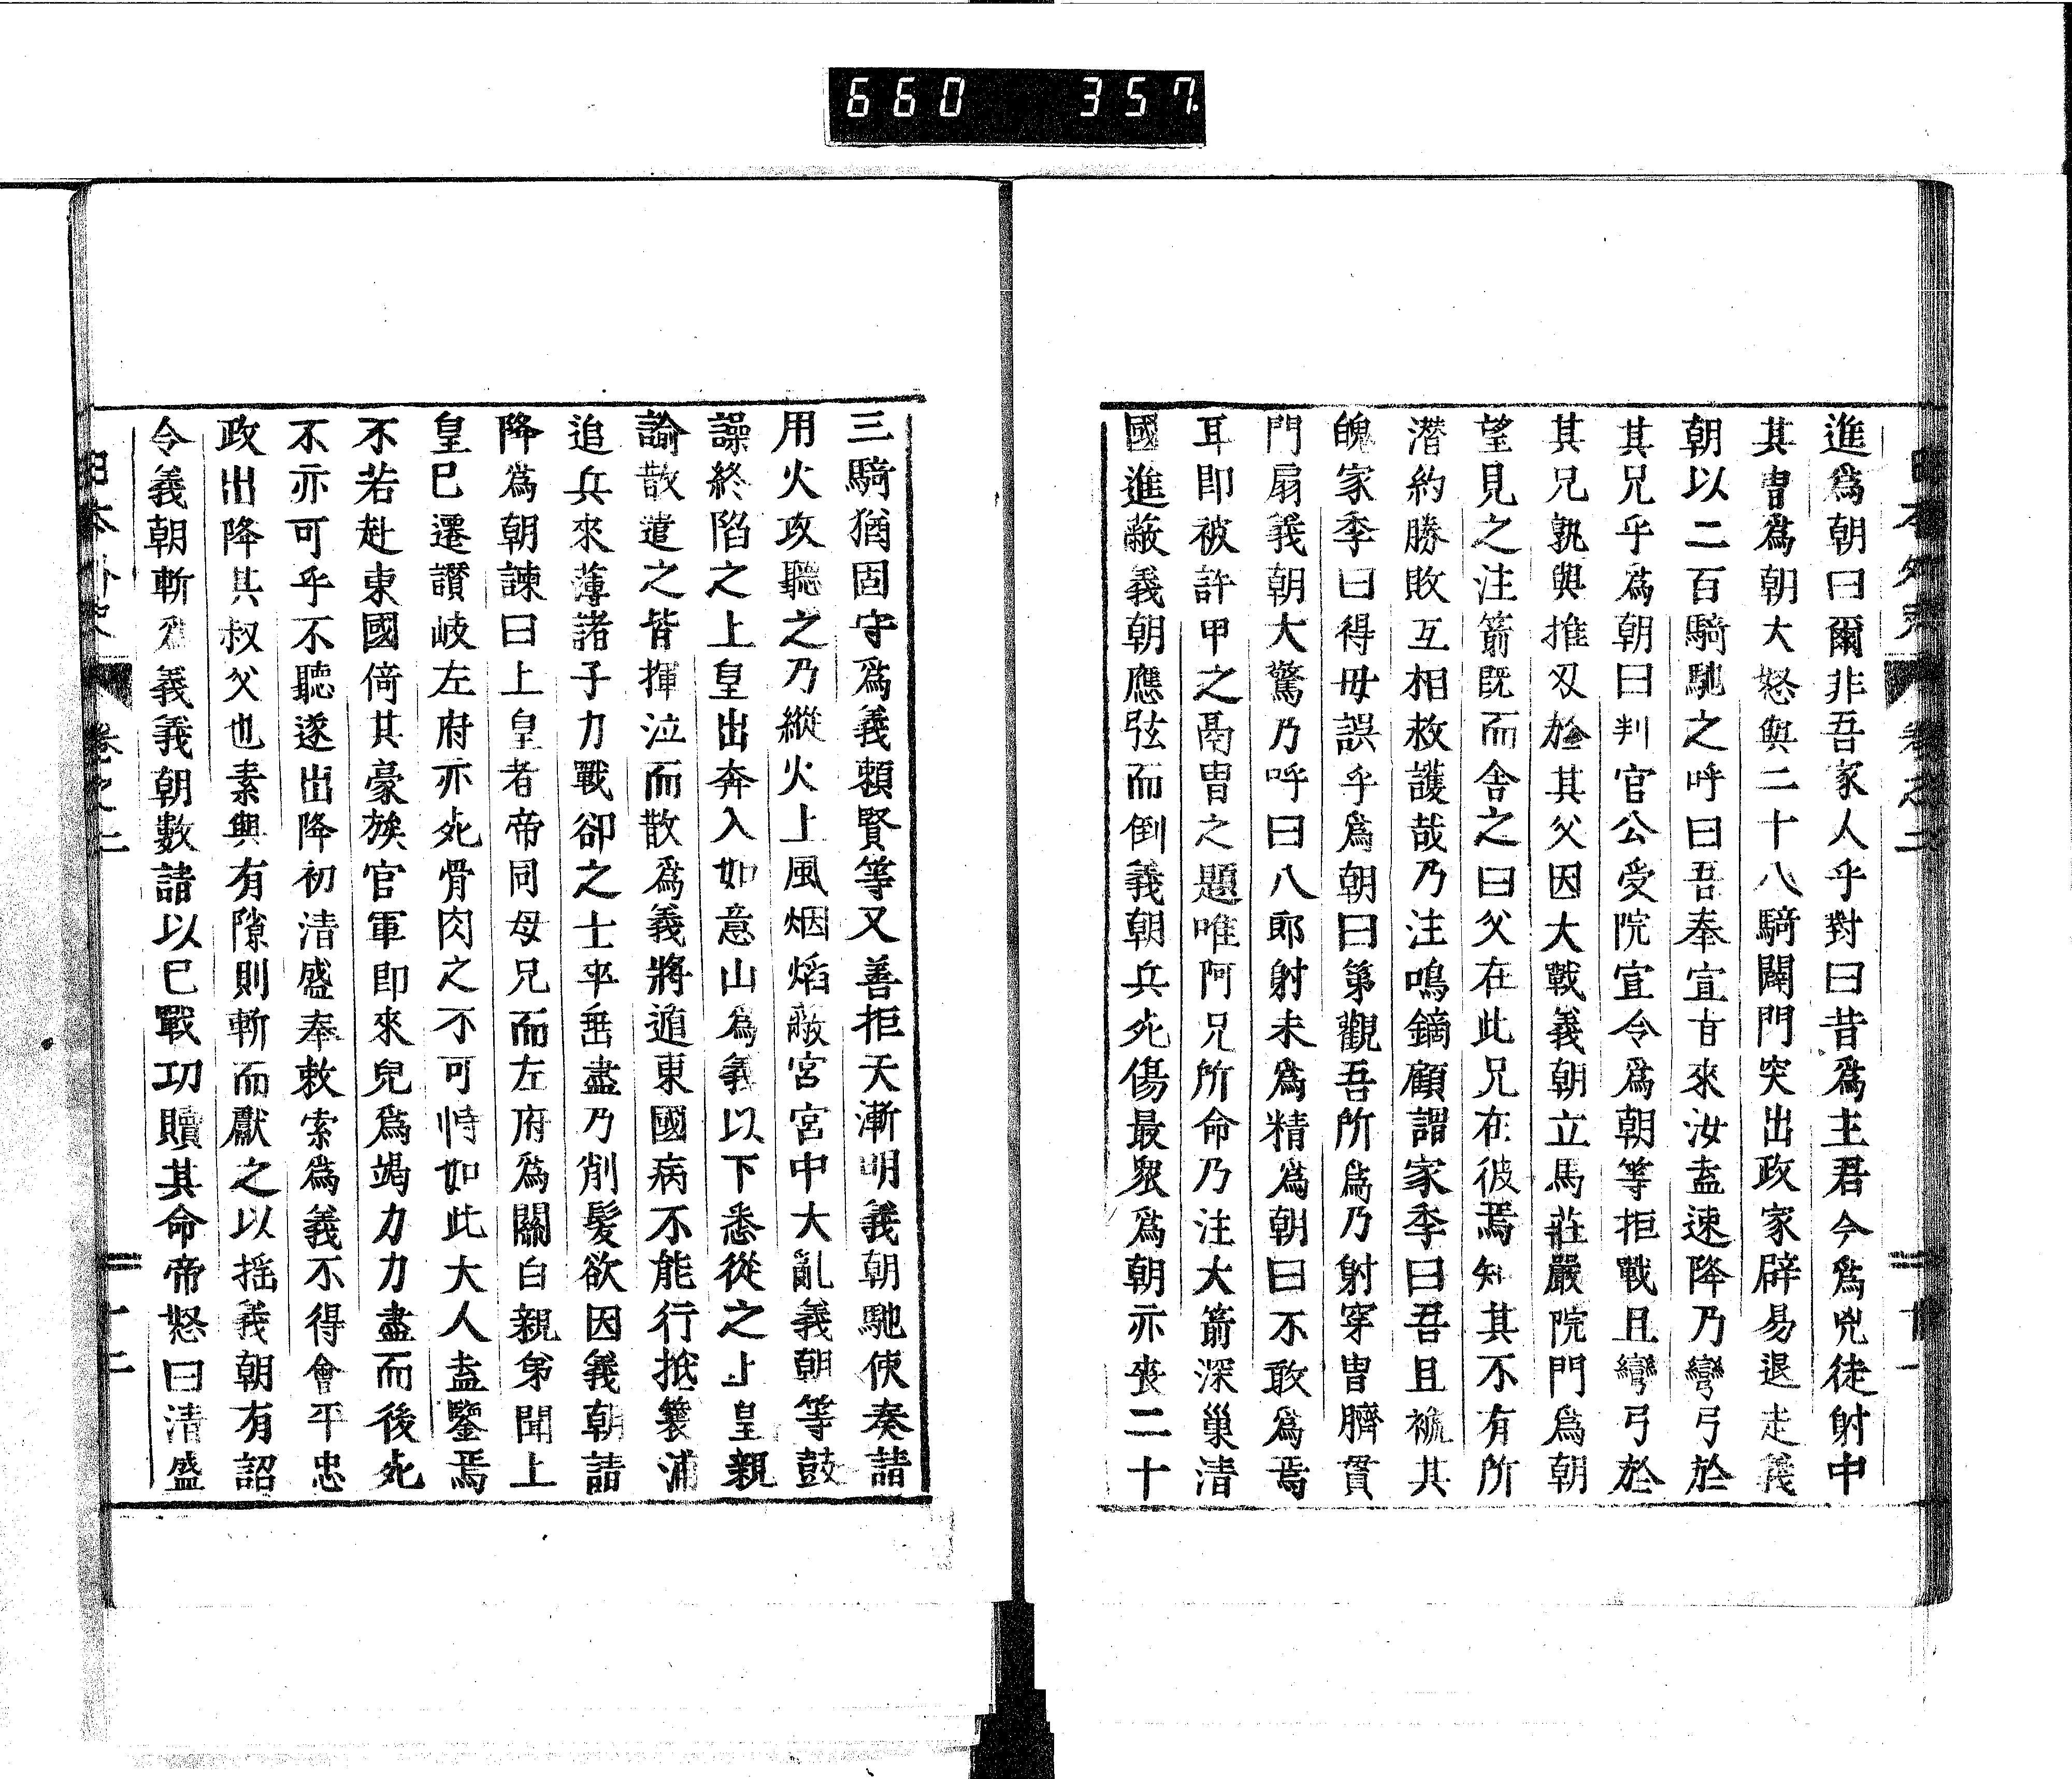 660 357
進爲朝曰爾非吾家人乎對曰昔爲主君今爲兇徒射中
其胄爲朝大怒與二十八騎闢門突出政家辟易退走義
朝以二百騎馳之呼曰吾奉宣旨來汝盍速降乃彎弓於
其兄乎爲朝曰判官公受院宣令爲朝等拒戰且彎弓於
其兄孰與推刃於其父因大戰義朝立馬莊嚴院門爲朝
望見之注箭既而舍之曰父在此兄在彼焉知其不有所
潛約勝敗互相救護哉乃注鳴鏑顧謂家季曰吾且褫其
魄家季曰得毋誤乎爲朝曰第觀吾所爲乃射穿胄臍貫
門扇義朝大驚乃呼曰八郎射未爲精爲朝曰不敢爲焉
耳即被許甲之鬲胄之題唯阿兄所命乃注大箭深巢清
國進蔽義朝應弦而倒義朝兵死傷最衆爲朝亦喪二十
三騎猶固守爲義賴賢等又善拒天漸明義朝馳使奏請
用火攻聽之乃縱火上風烟焰蔽宮宮中大亂義朝等鼓
譟終陷之上皇出奔入如意山爲義以下悉從之上皇親
諭散遣之皆揮泣而散爲義將遁東國病不能行抵簑浦
追兵來薄諸子力戰卻之士卒垂盡乃削髮欲因義朝請
降爲朝諫曰上皇者帝同母兄而左府爲關白親弟聞上
皇已遷讚岐左府亦死骨肉之不可恃如此大人盍鑒焉
不若赴東國倚其豪族官軍即來兒爲竭力力盡而後死
不亦可乎不聽遂出降初清盛奉敕索爲義不得會平忠
政出降其叔父也素與有隙則斬而獻之以搖義朝有詔
令義朝斬爲義義朝數請以已戰功贖其命帝怒曰清盛
日本外史 卷之二 十二